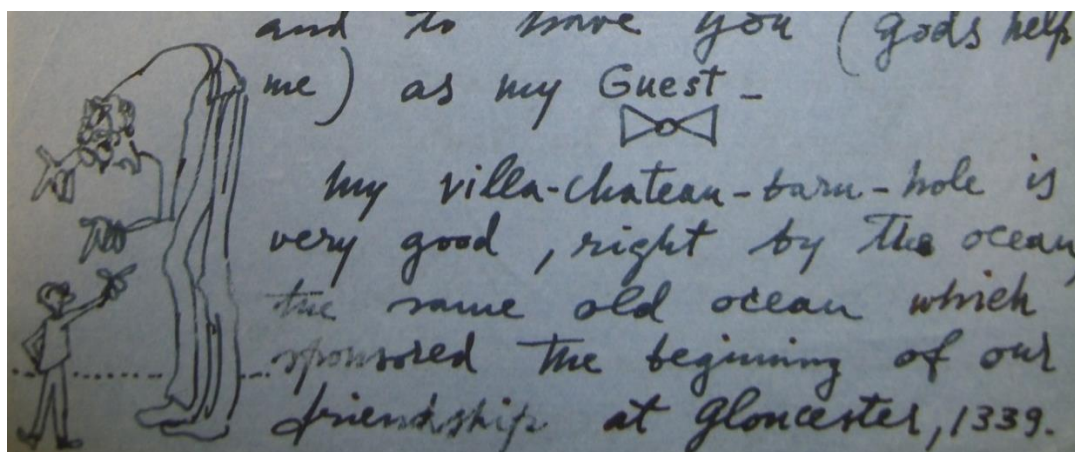 and to have you (gods help
me) as my Guest -
My villa-chateau-barn-hole is
very good, right by the ocean,
the same old ocean which
sponsored the beginning of our
friendship at Gloucester, 1339.